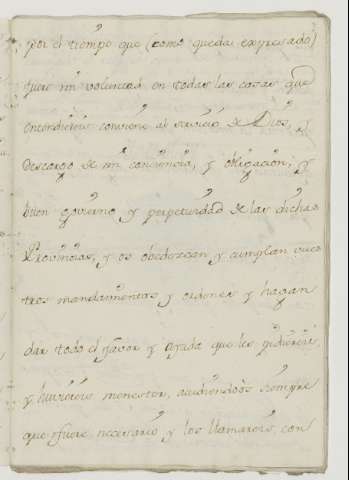 por el tiempo que (como queda expresado)
fuere mi voluntad en todas las cosas que
entendiereis conviene al servicio de Dios, y
descargo de mi conciencia, y obligacion, y
buen govierno y perpetuidad de las dichas
Provincias, y os obedezcan y cumplan vues
tros mandamientos y ordenes y hagan
dar todo el favor y ayuda que les pidiereis,
y huviereis menester, acudiendoos siempre
que fuere necesario y los llamareis, con